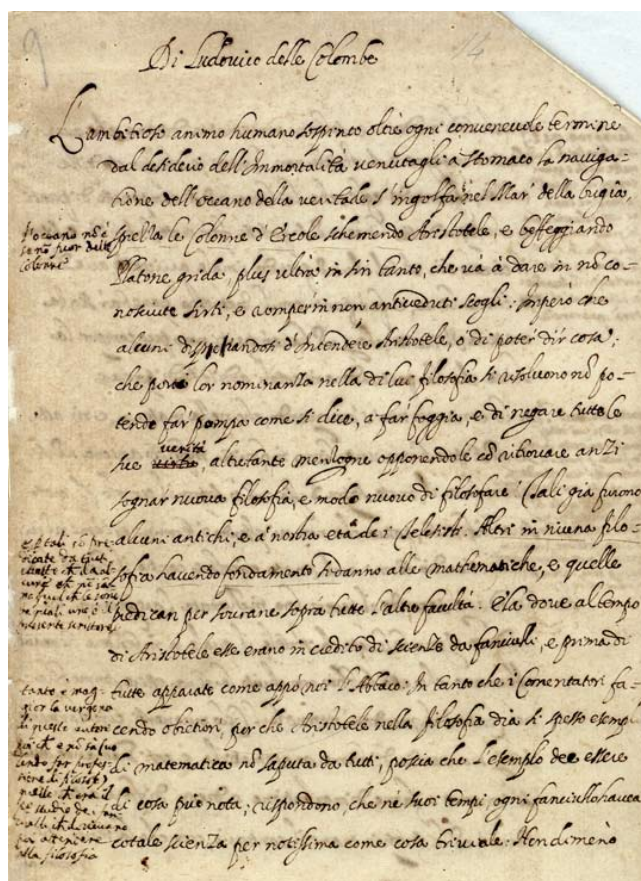 9
14
Di Ludovico delle Colombe
L'ambitioso animo humano sospinto oltre ogni convenevole termine
dal desiderio dell'Immortalità venutagli à stomaco la naviga-
tione dell'oceano della veritade s'ingolfa nel Mar' della bugia,
spreza le Colonne d'Ercole schernendo Aristotele, e beffeggiando
Platone grida, plus ultra in sin tanto, che và à dare in nō co-
nosciute sirti, e romper in non antiveduti scogli: Imperò che
alcuni disperandosi d'Intendere Aristotele, ò di poter dir cosa,
che porti lor nominanza nella di lui filosofia si risolvono nō po-
tendo far pompa come si dice, a far foggia, e di negar tutte le
sue verità, altretante menzogne opponendole cō ritrovare anzi
sognar nuova filosofia, e modo nuovo di filosofare: Tali già furono
alcuni antichi, e a' nostra età de i Telesisti. Altri in niuna filo-
sofia havendo fondamento si danno alle mathematiche, e quelle
predican per sourane sopra tutte l'altre facultà. Elà dove al tempo
di Aristotele esse erano in credito di scienze da fanciulli, e prima di
tutte apparate come appò noi l'Abbaco: In tanto che i Comentatori fa-
cendo obietioni, perche Aristotele nella filosofia dia si spesso esempli
di matematica nō saputa da tutti, poscia che l'esemplo dee essere
di cosa più nota; rispondono, che ne' suoi tempi, ogni fanciullo havea
cotale scienza per notissima come cosa triviale: Nondimeno
l'oceano nō è
se nō fuor delle
Colonne
e p tali sō pre-
dicate da tutti
tanto è mag-
gior la vergogna
di questo autore
alla filosofia